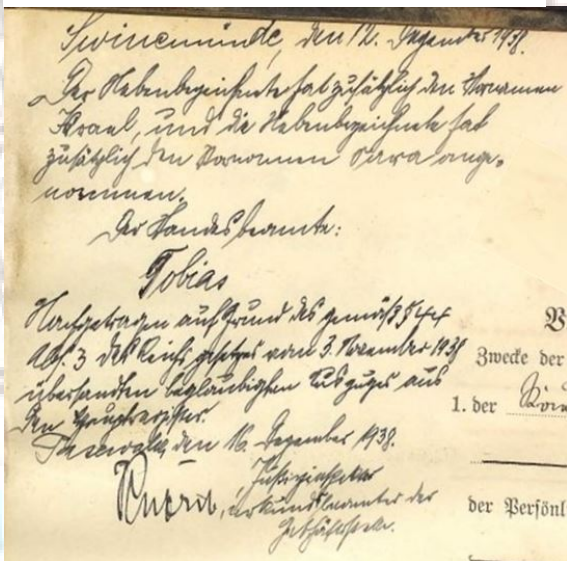 Swinemünde, den 12. Dezember 1938.
Der Nebenbezeichnete hat zusätzlich den Vornamen
Israel, und die Nebenbezeichnete hat
zusätzlich den Vornamen Sara ange-
nommen.
Der Standesbeamte:
Tobias
Nachgetragen auf Grund des gemäß § 44
Abs. 3 des Reichsgesetzes vom 3. November 1937
übersandten beglaubigten Auszuges aus
den Hauptregister.
den 16. Dezember 1938.
Justizinspektor
Urkundsbeamter der
Geschäftsstelle.
Zwecke der
1. der
der Persönl